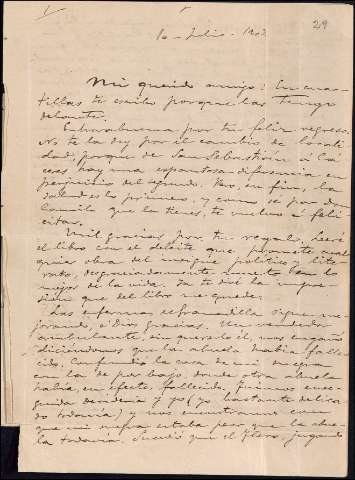 29
10 - Julio - 1903
Mi querido amigo: En cuar-
tillas te escribo porque las tengo
delante.
Enhorabuena por tu feliz regreso.
No te la doy por el cambio de locali-
dad, porque de San Sebastián a Cá-
ceres hay una espantosa diferencia en
perjuicio del segundo. Pero, en fin, la
salud es lo primero, y como sé por don
Camilo que la tienes, te vuelvo a feli-
citar.
Mil gracias por tu regalo. Leeré
el libro con el deleite que promete cual
quier obra del insigne político y lite-
rato, desgraciadamente muerto en lo
mejor de la vida. Ya te diré la impre-
sión que del libro me quede.
Las enfermas, el Granadilla sigue me-
jorando, a Dios gracias. Un vendedor
ambulante, sin quererlo él, nos engañó
diciéndonos que la abuela había falle-
cido. Confundió la casa de mi suegra
con la de por bajo, donde otra abuela
había, en efecto, fallecido. Fuimos ense-
guida Desideria y yo (yo bastante delica-
do todavía) y nos encontramos con
que mi suegra estaba peor que la abue-
la todavía. Sucedió que el
jugando